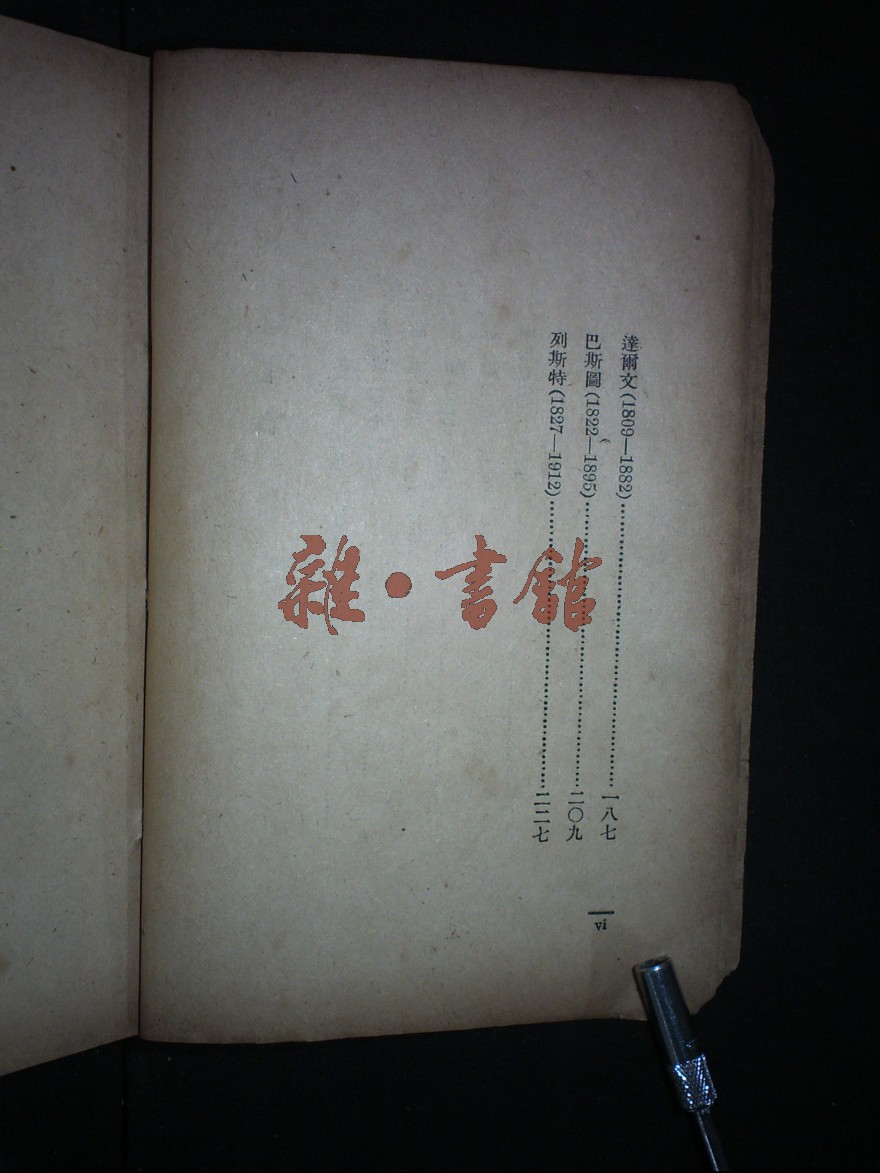 達爾文(1809—1882)……………………………一八七
巴斯圖(1822—1895)……………………………二〇九
列斯特(1827—1912)……………………………二二七
vi
雜·書館